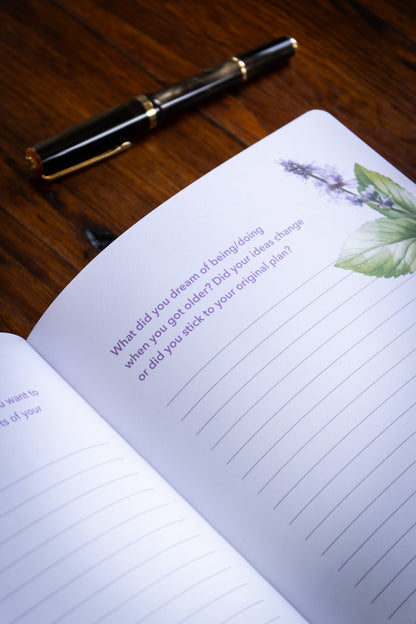 u want to
ts of your
What did you dream of being/doing
when you got older? Did your ideas change
or did you stick to your original plan?